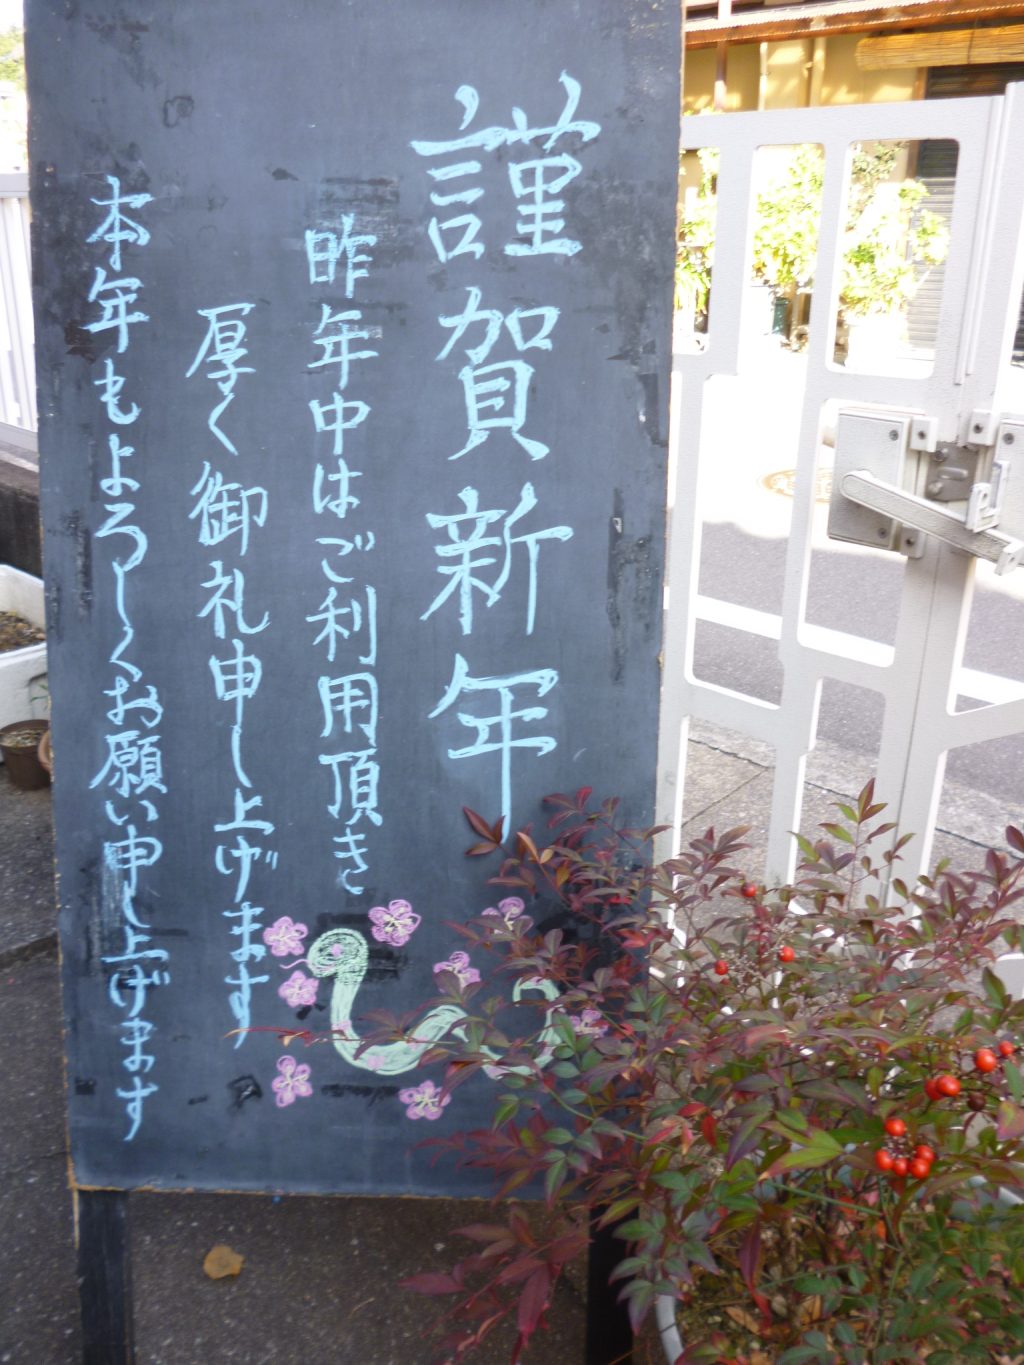 謹賀新年
昨年中はご利用頂き
厚く御礼申し上げます
本年もよろしくお願い申し上げます